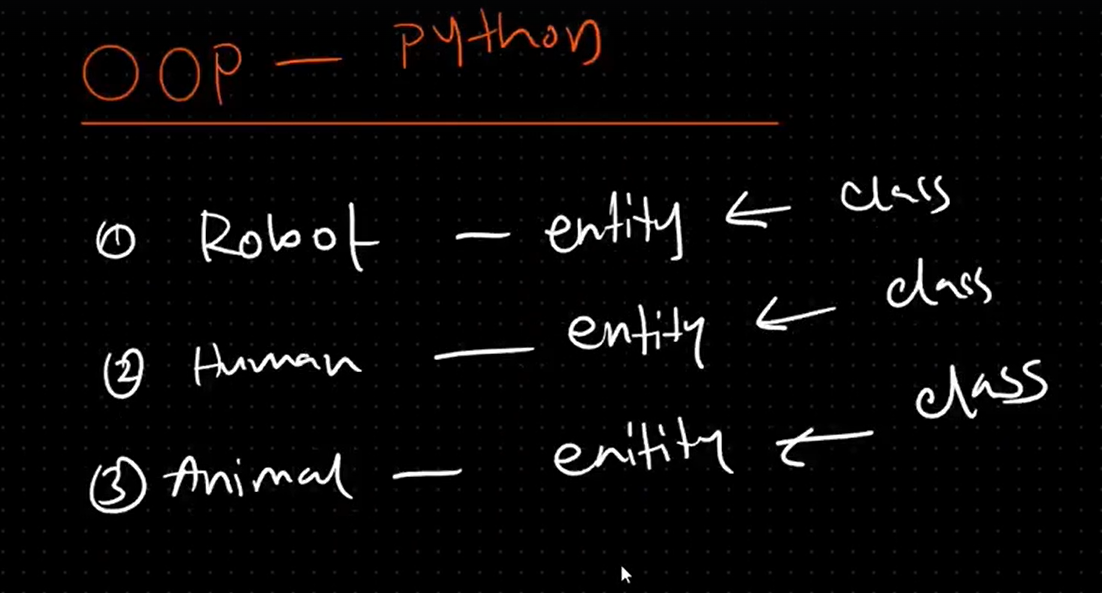 OOP — python
① Robot — entity ← class
② Human — entity ← class
③ Animal — enitity ← class